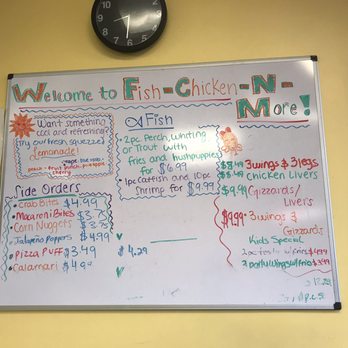 Welcome to Fish-Chicken-N-
More!
Want something
cool and refreshing?
try our fresh squeezed
Lemonade!
peach
cherry
Fish
2pc Perch, Whiting
or Trout with
fries and humpuppies
for $6.99
1pc Catfish and 10pc
Shrimp for $9.99
Side Orders
Crab Bites $4.99
Macaroni Bites $3.75
Corn Nuggets $3.75
Jalapeño Poppers $4.99
Pizza Puff $3.49 $4.29
Calamari $4.99
$8.49 3wings & 3legs
$8.49 Chicken Livers
$9.99 Gizzards/
Livers
$9.99 3wings &
Gizzards
Kids Special